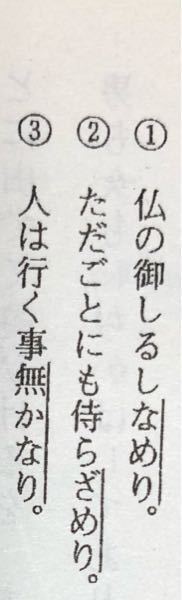 ① 仏の御しるしなめり。
② ただごとにも侍らざめり。
③ 人は行く事無かなり。